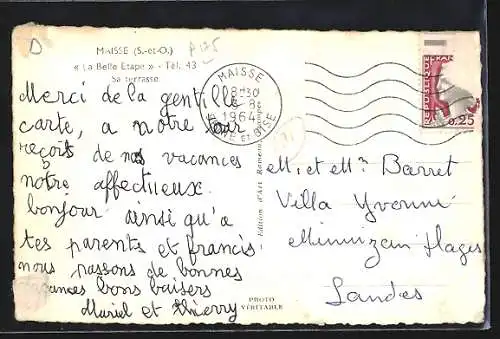 D
MAISSE (S.-et-O.)
« La Belle Etape » - Tél. 43
Sa terrasse
Merci de la gentille
carte, a notre tour
reçois de nos vacances
notre affectueux
bonjour ainsi qu'a
tes parents et francis
nous passons de bonnes
vacances bons baisers
Muriel et Thierry
MAISSE
08H30
8
1964
SEINE ET OISE
REPUBLIQUE
0,25
Edition d'Art
PHOTO
VÉRITABLE
M. et Mme Barret
Villa Yvonne
Mimizan Plages
Landes